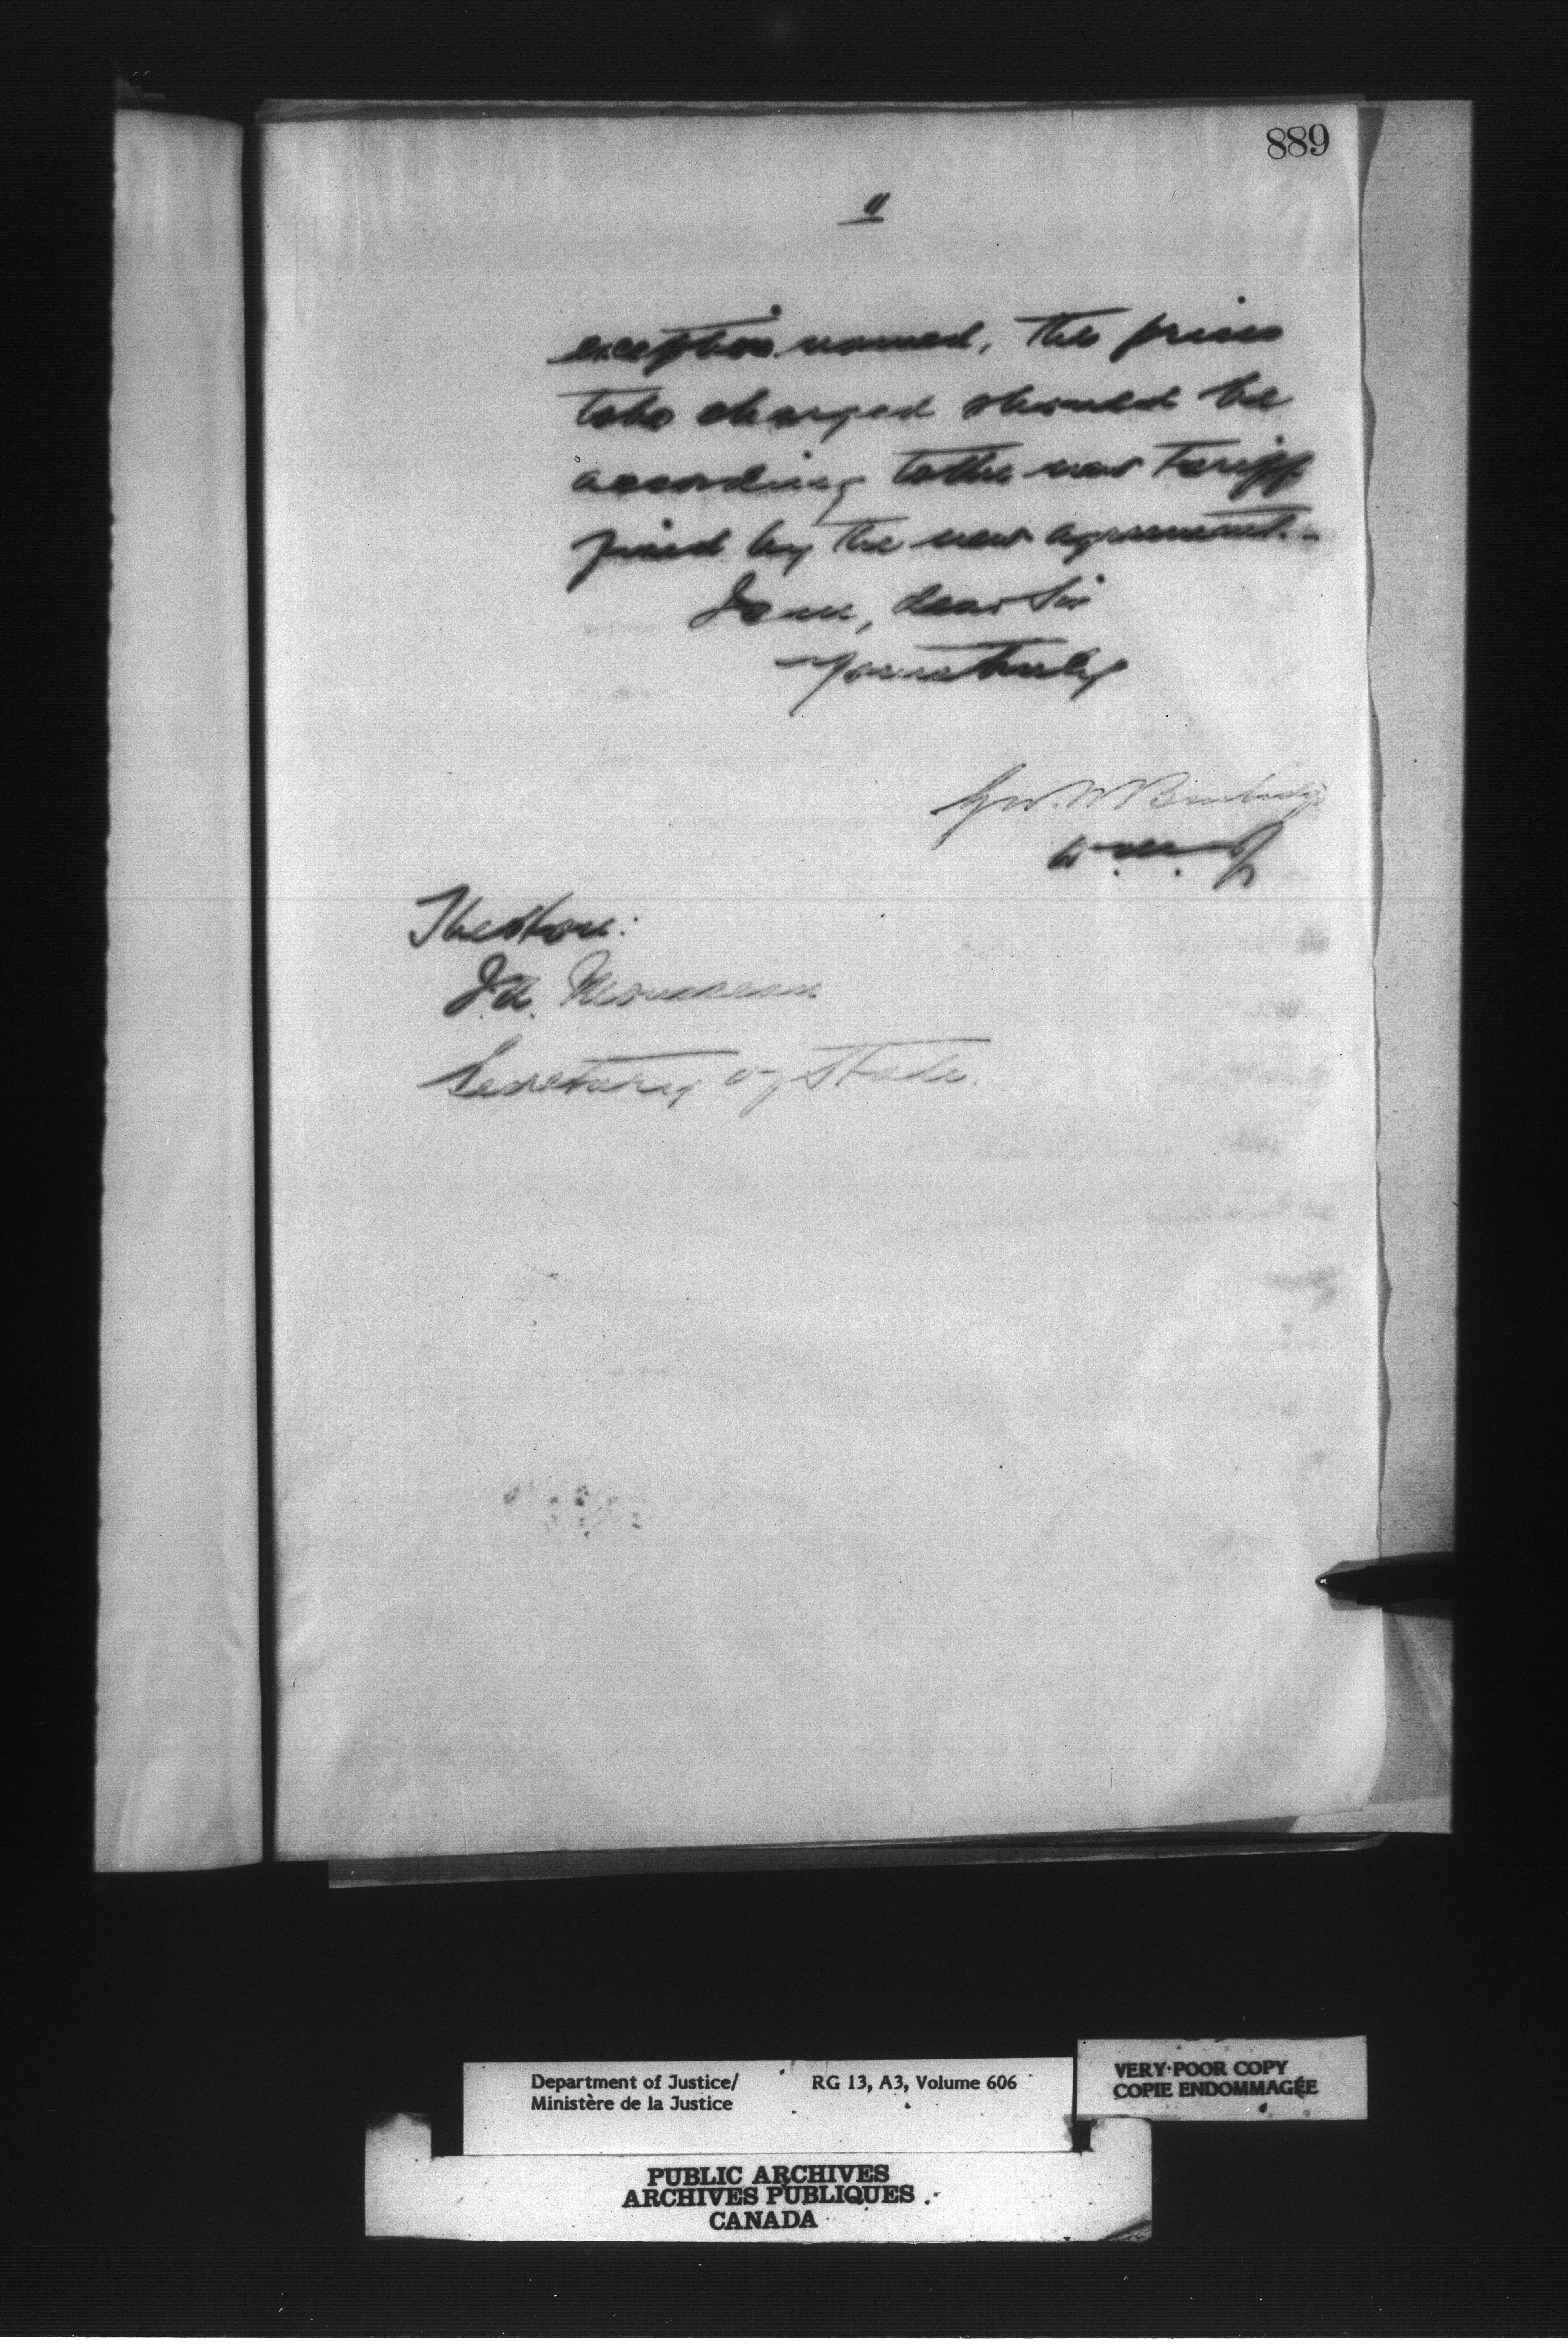 889
11
exception named, the prices
to be charged should be
according to the new Tariff
fixed by the new agreement. -
I am, dear Sir
Yours truly
Geo. W Burbidge
D. M. J
The Hon:
J. A. Mousseau
Secretary of State.
Department of Justice/ RG 13, A3, Volume 606
Ministère de la Justice
VERY POOR COPY
COPIE ENDOMMAGÉE
PUBLIC ARCHIVES
ARCHIVES PUBLIQUES
CANADA